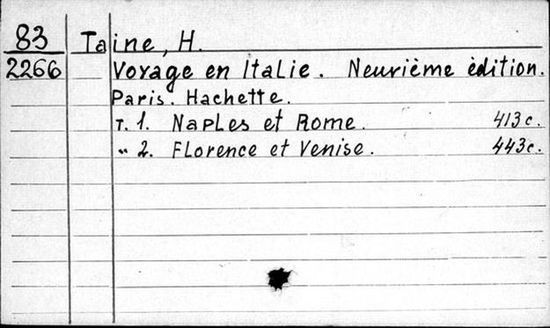 83 Taine, H.
2266 Voyage en Italie. Neuvième édition.
Paris. Hachette.
т. 1. Naples et Rome. 413с.
" 2. Florence et Venise. 443с.